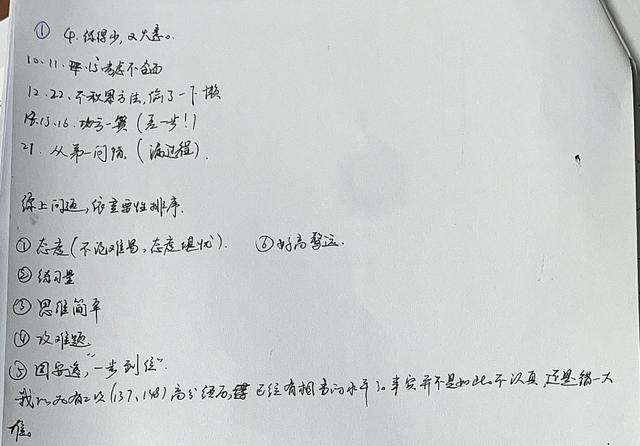 ① 4. 练得少, 又大意。
10. 11. 15 考虑不全面
12. 22. 不积累方法, 偷了一下懒
13. 16. 功亏一篑 (差一步!)
21. 从第一问错. (漏过程).
综上问题, 依重要性排序.
① 态度 (不论难易, 态度堪忧). ⑥ 好高骛远.
② 练习量
③ 思维简单
④ 攻难题
⑤ 因要追, "一步到位".
我以为有2次 (137, 148) 高分经历, 已经有相当的水平了. 事实并不是如此. 不认真, 还是错一大
堆。